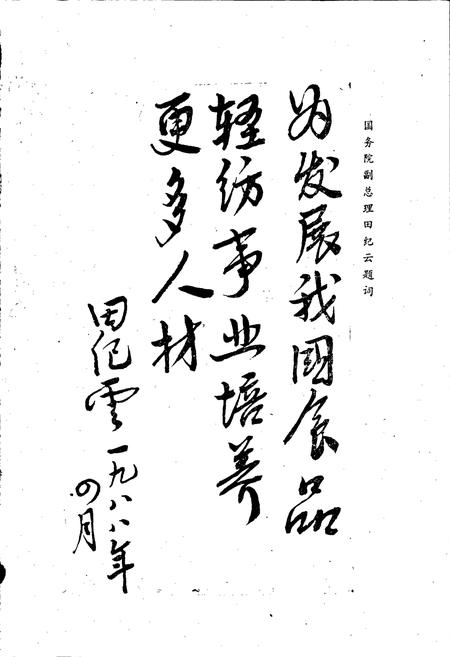 国务院副总理田纪云题词
为发展我國食品
轻纺事业培养
更多人材
田纪雲一九八八年
四月